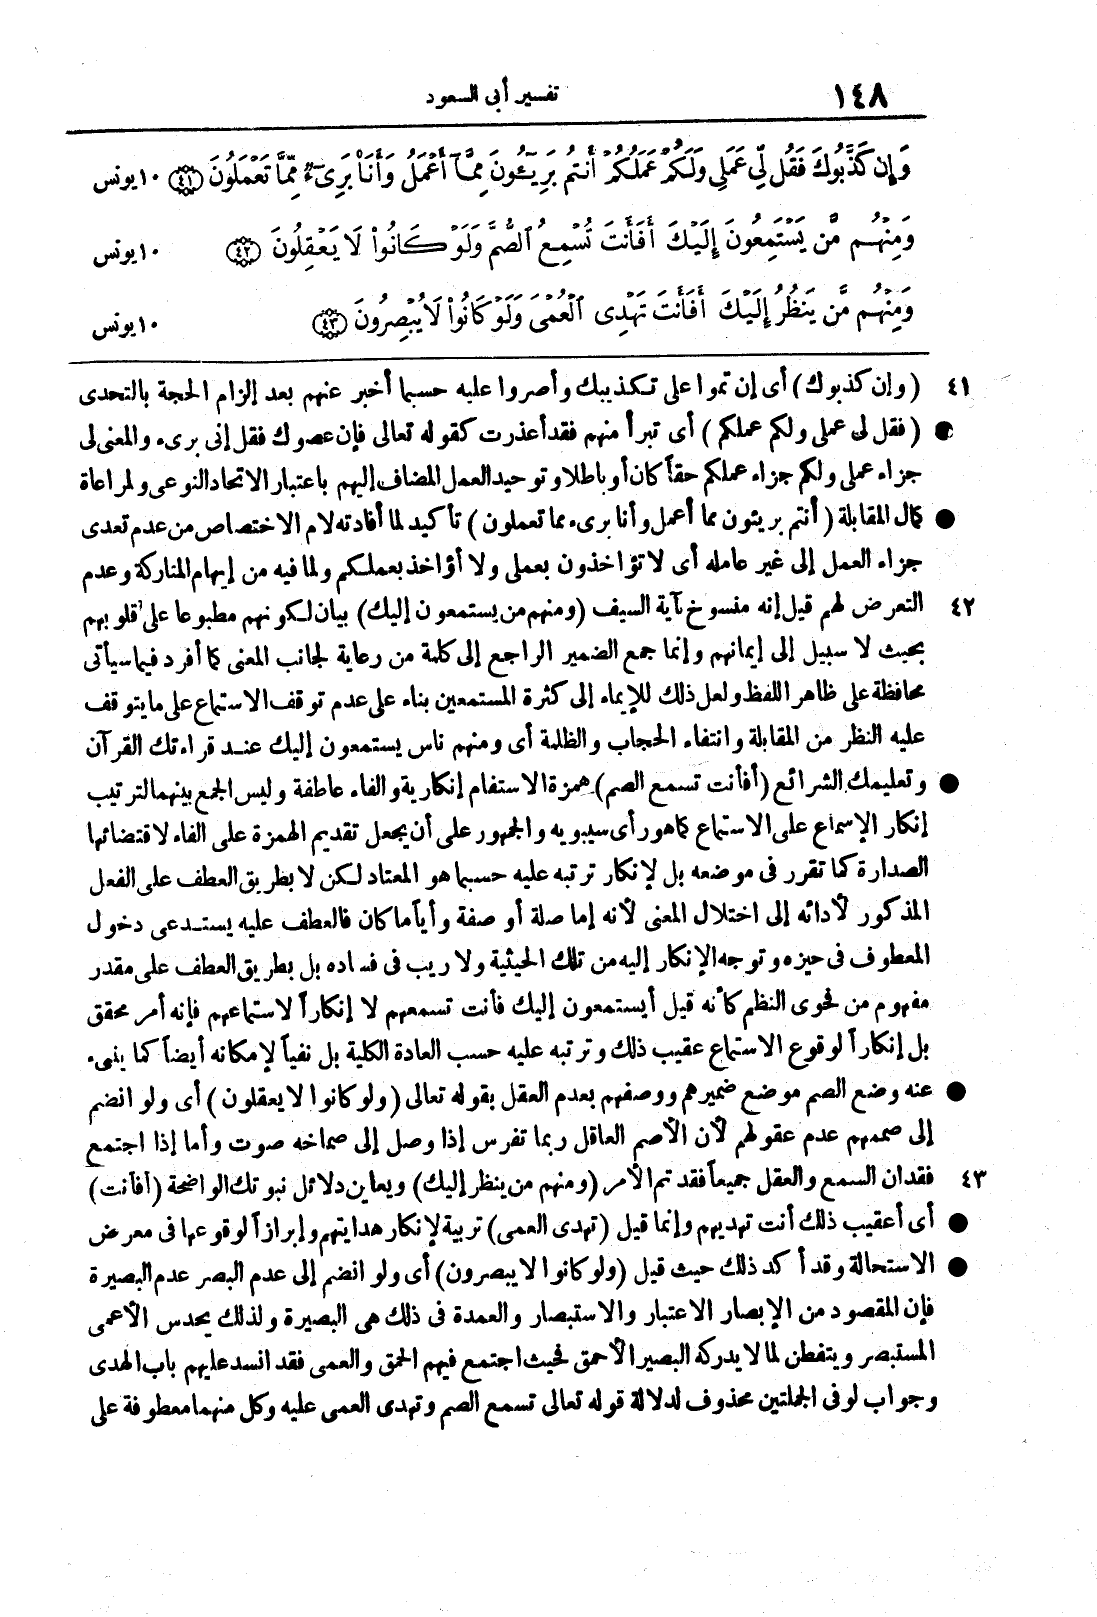 ١٤٨ تفسير أبى السعود
وَإِن كَذَّبُوكَ فَقُل لِّي عَمَلِي وَلَكُمْ عَمَلُكُمْ أَنتُم بَرِيٓـُٔونَ مِمَّآ أَعْمَلُ وَأَنَا۠ بَرِىٓءٌ مِّمَّا تَعْمَلُونَ ﴿٤١﴾ ١٠ يونس
وَمِنْهُم مَّن يَسْتَمِعُونَ إِلَيْكَ أَفَأَنتَ تُسْمِعُ ٱلصُّمَّ وَلَوْ كَانُوا۟ لَا يَعْقِلُونَ ﴿٤٢﴾ ١٠ يونس
وَمِنْهُم مَّن يَنظُرُ إِلَيْكَ أَفَأَنتَ تَهْدِى ٱلْعُمْىَ وَلَوْ كَانُوا۟ لَا يُبْصِرُونَ ﴿٤٣﴾ ١٠ يونس
٤١ (وإن كذبوك) أى إن تموا على تكذيبك وأصروا عليه حسبما أخبر عنهم بعد إلزام الحجة بالتحدى
● (فقل لى عملى ولكم عملكم) أى تبرأ منهم فقد أعذرت كقوله تعالى فإن عصوك فقل إنى برىء والمعنى لى
جزاء عملى ولكم جزاء عملكم حقاً كان أو باطلا وتوحيد العمل المضاف إليهم باعتبار الاتحاد النوعى ولمراعاة
● كمال المقابلة (أنتم بريئون مما أعمل وأنا برىء مما تعملون) تأكيد لما أفادته لام الاختصاص من عدم تعدى
جزاء العمل إلى غير عامله أى لا تؤاخذون بعملى ولا أؤاخذ بعملكم ولما فيه من إيهام المتاركة وعدم
٤٢ التعرض لهم قيل إنه منسوخ بآية السيف (ومنهم من يستمعون إليك) بيان لكونهم مطبوعا على قلوبهم
بحيث لا سبيل إلى إيمانهم وإنما جمع الضمير الراجع إلى كلمة من رعاية لجانب المعنى كما أفرد فيما سيأتى
محافظة على ظاهر اللفظ ولعل ذلك للإيماء إلى كثرة المستمعين بناء على عدم توقف الاستماع على ما يتوقف
عليه النظر من المقابلة وانتفاء الحجاب والظلمة أى ومنهم ناس يستمعون إليك عند قراءتك القرآن
● وتعليمك الشرائع (أفأنت تسمع الصم) همزة الاستفهام إنكارية والفاء عاطفة وليس الجمع بينهما لترتيب
إنكار الإسماع على الاستماع كما هو رأى سيبويه والجمهور على أن يجعل تقديم الهمزة على الفاء لاقتضائها
الصدارة كما تقرر فى موضعه بل لإنكار ترتبه عليه حسبما هو المعتاد لكن لا بطريق العطف على الفعل
المذكور لأدائه إلى اختلال المعنى لأنه إما صلة أو صفة وأياً ما كان فالعطف عليه يستدعى دخول
المعطوف فى حيزه وتوجه الإنكار إليه من تلك الحيثية ولا ريب فى فساده بل بطريق العطف على مقدر
مفهوم من فحوى النظم كأنه قيل أيستمعون إليك فأنت تسمعهم لا إنكاراً لاستماعهم فإنه أمر محقق
بل إنكاراً لوقوع الاستماع عقيب ذلك وترتبه عليه حسب العادة الكلية بل نفياً لإمكانه أيضاً كما ينبىء
● عنه وضع الصم موضع ضميرهم ووصفهم بعدم العقل بقوله تعالى (ولو كانوا لا يعقلون) أى ولو انضم
إلى صممهم عدم عقولهم لأن الأصم العاقل ربما تفرس إذا وصل إلى صماخه صوت وأما إذا اجتمع
٤٣ فقدان السمع والعقل جميعاً فقد تم الأمر (ومنهم من ينظر إليك) ويعاين دلائل نبوتك الواضحة (أفأنت)
● أى أعقيب ذلك أنت تهديهم وإنما قيل (تهدى العمى) تربية لإنكار هدايتهم وإبرازاً لوقوعها فى معرض
● الاستحالة وقد أكد ذلك حيث قيل (ولو كانوا لا يبصرون) أى ولو انضم إلى عدم البصر عدم البصيرة
فإن المقصود من الإبصار الاعتبار والاستبصار والعمدة فى ذلك هى البصيرة ولذلك يحدس الأعمى
المستبصر ويتفطن لما لا يدركه البصير الأحمق فحيث اجتمع فيهم الحمق والعمى فقد انسد عليهم باب الهدى
وجواب لو فى الجملتين محذوف لدلالة قوله تعالى تسمع الصم وتهدى العمى عليه وكل منهما معطوفة على